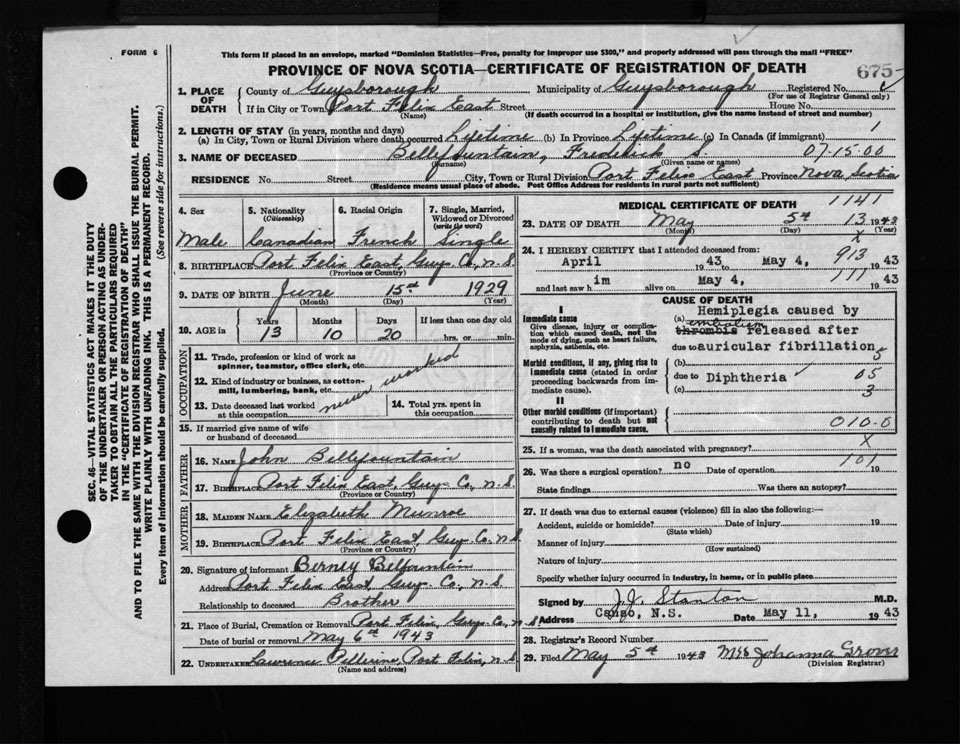 FORM 6
This form if placed in an envelope, marked "Dominion Statistics—Free, penalty for improper use $300," and properly addressed will pass through the mail "FREE"
PROVINCE OF NOVA SCOTIA—CERTIFICATE OF REGISTRATION OF DEATH
675
1. PLACE OF DEATH
County of Guysborough Municipality of Guysborough Registered No.
(For use of Registrar General only)
If in City or Town Port Felix East Street House No.
(Name) (If death occurred in a hospital or institution, give the name instead of street and number)
2. LENGTH OF STAY (in years, months and days)
(a) In City, Town or Rural Division where death occurred Lifetime (b) In Province Lifetime (c) In Canada (if immigrant) 1
3. NAME OF DECEASED Bellefountain, Frederick S. 07-15-00
(Surname) (Given name or names)
RESIDENCE No. Street City, Town or Rural Division Port Felix East Province Nova Scotia
(Residence means usual place of abode. Post Office Address for residents in rural parts not sufficient)
4. Sex
5. Nationality (Citizenship)
6. Racial Origin
7. Single, Married, Widowed or Divorced (write the word)
Male Canadian French Single
8. BIRTHPLACE Port Felix East, Guy. Co, N.S.
(Province or Country)
9. DATE OF BIRTH June 15th 1929
(Month) (Day) (Year)
10. AGE in Years Months Days If less than one day old
13 10 20 hrs. or min.
OCCUPATION
11. Trade, profession or kind of work as spinner, teamster, office clerk, etc.
12. Kind of industry or business, as cotton-mill, lumbering, bank, etc.
never worked
13. Date deceased last worked at this occupation
14. Total yrs. spent in this occupation
15. If married give name of wife or husband of deceased
FATHER
16. NAME John Bellefountain
17. BIRTHPLACE Port Felix East, Guy. Co, N.S.
(Province or Country)
MOTHER
18. MAIDEN NAME Elizabeth Munroe
19. BIRTHPLACE Port Felix East, Guy. Co. N.S.
(Province or Country)
20. Signature of informant Berney Belfountain
Address Port Felix East, Guy. Co, N.S.
Relationship to deceased Brother
21. Place of Burial, Cremation or Removal Port Felix, Guy. Co, N.S.
Date of burial or removal May 6th 1943
22. UNDERTAKER Lawrence Pellerine, Port Felix, N.S.
(Name and address)
MEDICAL CERTIFICATE OF DEATH 1141
23. DATE OF DEATH May 5th 13 1943
(Month) (Day) (Year)
X
24. I HEREBY CERTIFY that I attended deceased from: 913
April 1943 to May 4, 1943
and last saw him alive on May 4, 111 1943
CAUSE OF DEATH
I
Immediate cause
Give disease, injury or complication which caused death, not the mode of dying, such as heart failure, asphyxia, asthenia, etc.
(a) Hemiplegia caused by
embolism
thrombis released after
due to auricular fibrillation
5
Morbid conditions, if any, giving rise to immediate cause (stated in order proceeding backwards from immediate cause).
(b)
due to Diphtheria 05
(c) 3
II
Other morbid conditions (if important) contributing to death but not causally related to immediate cause.
010-0
25. If a woman, was the death associated with pregnancy? X
26. Was there a surgical operation? no Date of operation 101 19
State findings Was there an autopsy?
27. If death was due to external causes (violence) fill in also the following:—
Accident, suicide or homicide? Date of injury 19
(State which)
Manner of injury
(How sustained)
Nature of injury
Specify whether injury occurred in industry, in home, or in public place
Signed by J.J. Stanton M.D.
Address Canso, N.S. Date May 11, 1943
28. Registrar's Record Number
29. Filed May 5th 1943 Mrs Johanna Grover
(Division Registrar)
SEC. 46—VITAL STATISTICS ACT MAKES IT THE DUTY
OF THE UNDERTAKER OR PERSON ACTING AS UNDER-
TAKER TO OBTAIN ALL THE PARTICULARS REQUIRED
IN THE "CERTIFICATE OF REGISTRATION OF DEATH"
AND TO FILE THE SAME WITH THE DIVISION REGISTRAR WHO SHALL ISSUE THE BURIAL PERMIT.
WRITE PLAINLY WITH UNFADING INK. THIS IS A PERMANENT RECORD.
Every item of information should be carefully supplied. (See reverse side for instructions.)